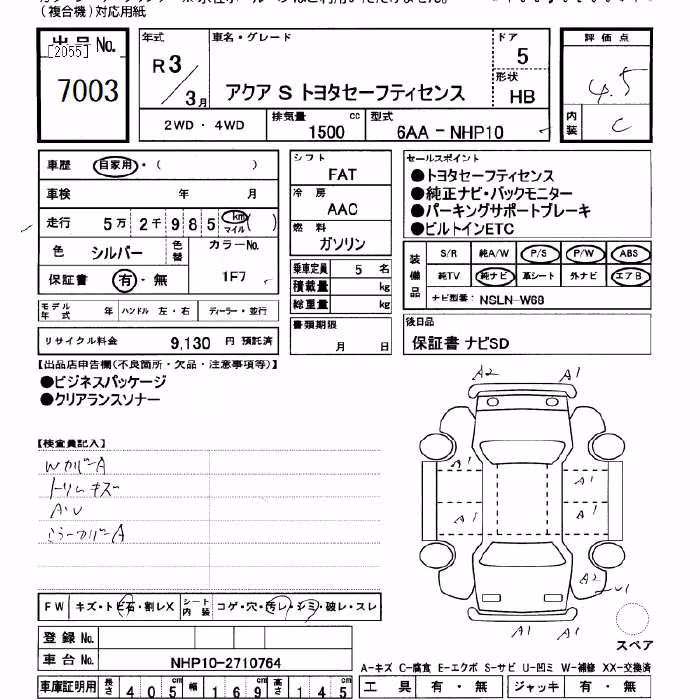 (複合機)対応用紙
出品No.
[2055]
7003
年式
R3/3月
車名・グレード
アクア S トヨタセーフティセンス
ドア
5
形状
HB
2WD・4WD
排気量
1500 cc
型式
6AA-NHP10
評価点
4.5
内装
C
車歴 自家用・( )
車検 年 月
走行 5万2千985 km マイル ( )
色 シルバー 色替 カラーNo.
保証書 有・無 1F7
モデル年式 年 ハンドル 左・右 ディーラー・並行
リサイクル料金 9,130 円 預託済
シフト
FAT
冷房
AAC
燃料
ガソリン
乗車定員 5 名
積載量 kg
総重量 kg
書類期限
月 日
セールスポイント
●トヨタセーフティセンス
●純正ナビ・バックモニター
●パーキングサポートブレーキ
●ビルトインETC
装備品
S/R 純A/W P/S P/W ABS
純TV 純ナビ 革シート 外ナビ エアB
ナビ型番: NSLN-W68
後日品
保証書 ナビSD
【出品店申告欄(不良箇所・欠品・注意事項等)】
●ビジネスパッケージ
●クリアランスソナー
【検査員記入】
WカバーA
トリムキズ
AU
ミラーカバーA
A2 A1
A1 A1
A1 A1
A2 U1
A1 A1
スペア
FW キズ・トビ石・割レX シート内装 コゲ・穴・汚レ・シミ・破レ・スレ
登録No.
車台No. NHP10-2710764
車庫証明用 長さ 405cm 幅 169cm 高さ 145cm
A-キズ C-腐食 E-エクボ S-サビ U-凹ミ W-補修 XX-交換済
工具 有・無 ジャッキ 有・無